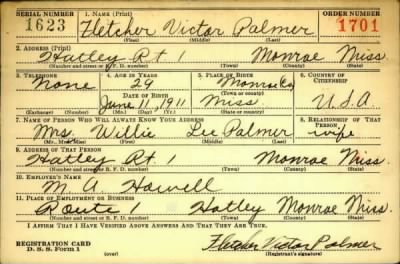 SERIAL NUMBER 1. NAME (Print) ORDER NUMBER
1623 Fletcher Victor Palmer 1701
(First) (Middle) (Last)
2. ADDRESS (Print)
Hatley Rt. 1 Monroe Miss.
(Number and street or R. F. D. number) (Town) (County) (State)
3. TELEPHONE 4. AGE IN YEARS 5. PLACE OF BIRTH 6. COUNTRY OF CITIZENSHIP
None 29 Monroe Co
DATE OF BIRTH (Town or county)
June 11, 1911 Miss. U.S.A
(Exchange) (Number) (Mo.) (Day) (Yr.) (State or country)
7. NAME OF PERSON WHO WILL ALWAYS KNOW YOUR ADDRESS 8. RELATIONSHIP OF THAT PERSON
Mrs. Willie Lee Palmer wife
(Mr., Mrs., Miss) (First) (Middle) (Last)
9. ADDRESS OF THAT PERSON
Hatley Rt. 1 Monroe Miss.
(Number and street or R. F. D. number) (Town) (County) (State)
10. EMPLOYER'S NAME
M. A. Howell
11. PLACE OF EMPLOYMENT OR BUSINESS
Route 1 Hatley Monroe Miss.
(Number and street or R. F. D. number) (Town) (County) (State)
I AFFIRM THAT I HAVE VERIFIED ABOVE ANSWERS AND THAT THEY ARE TRUE.
REGISTRATION CARD Fletcher Victor Palmer
D. S. S. Form 1 (over) (Registrant's signature)